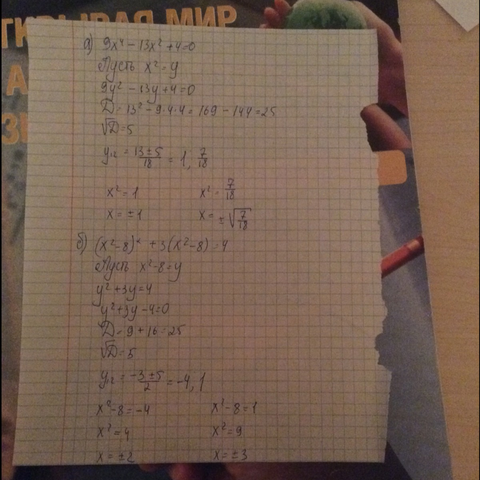 ТКРЫВАЯ МИР
а) 9x⁴ − 13x² + 4 = 0
Пусть x² = y
9y² − 13y + 4 = 0
D = 13² − 9·4·4 = 169 − 144 = 25
√D = 5
y₁,₂ = (13 ± 5)/18 = 1, 7/18
x² = 1 x² = 7/18
x = ±1 x = ±√(7/18)
б) (x² − 8)² + 3(x² − 8) = 4
Пусть x² − 8 = y
y² + 3y = 4
y² + 3y − 4 = 0
D = 9 + 16 = 25
√D = 5
y₁,₂ = (−3 ± 5)/2 = −4, 1
x² − 8 = −4 x² − 8 = 1
x² = 4 x² = 9
x = ±2 x = ±3